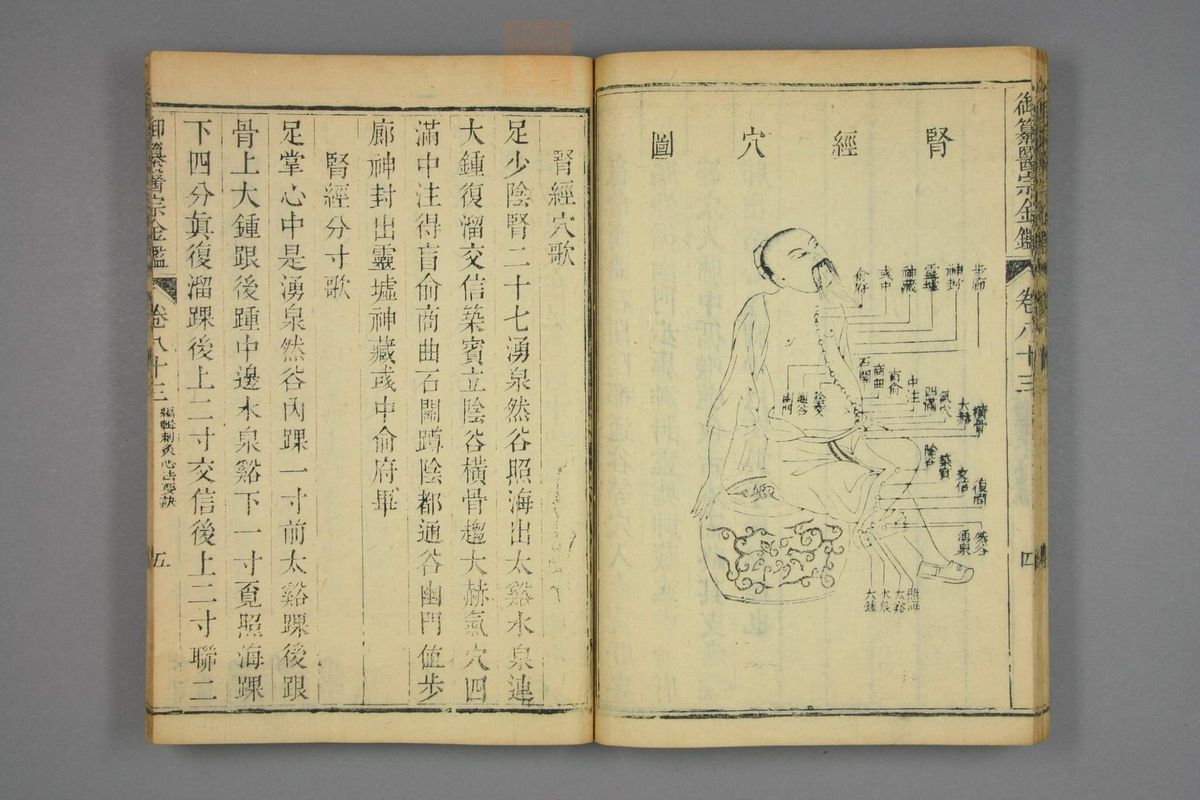 御纂醫宗金鑑
卷八十三
四
腎經穴圖
步廊
神封
靈墟
神藏
彧中
俞府
橫骨
大赫
氣穴
四滿
中注
肓俞
商曲
石關
陰交
通谷
幽門
復溜
交信
築賓
陰谷
然谷
湧泉
照海
太谿
水泉
大鍾
腎經穴歌
足少陰腎二十七湧泉然谷照海出太谿水泉連
大鍾復溜交信築賓立陰谷橫骨趨大赫氣穴四
滿中注得肓俞商曲石關蹲陰都通谷幽門值步
廊神封出靈墟神藏彧中俞府畢
腎經分寸歌
足掌心中是湧泉然谷內踝一寸前太谿踝後跟
骨上大鍾跟後踵中邊水泉谿下一寸覓照海踝
下四分真復溜踝後上二寸交信後上二寸聯二
御纂醫宗金鑑
卷八十三
編輯刺灸心法要訣
五